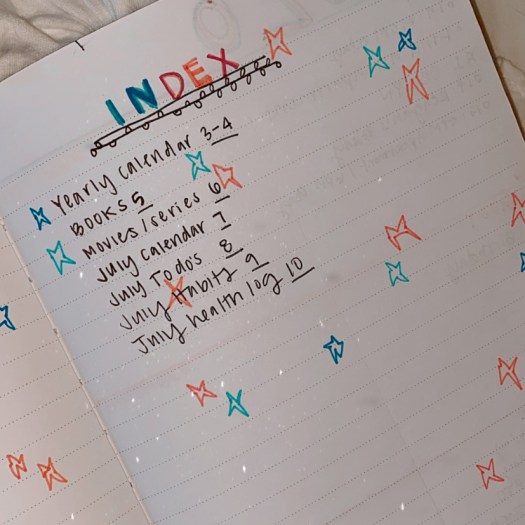 INDEX
Yearly calendar 3-4
BOOKS 5
Movies/series 6
July calendar 7
July To do's 8
July Habity 9
July health log 10